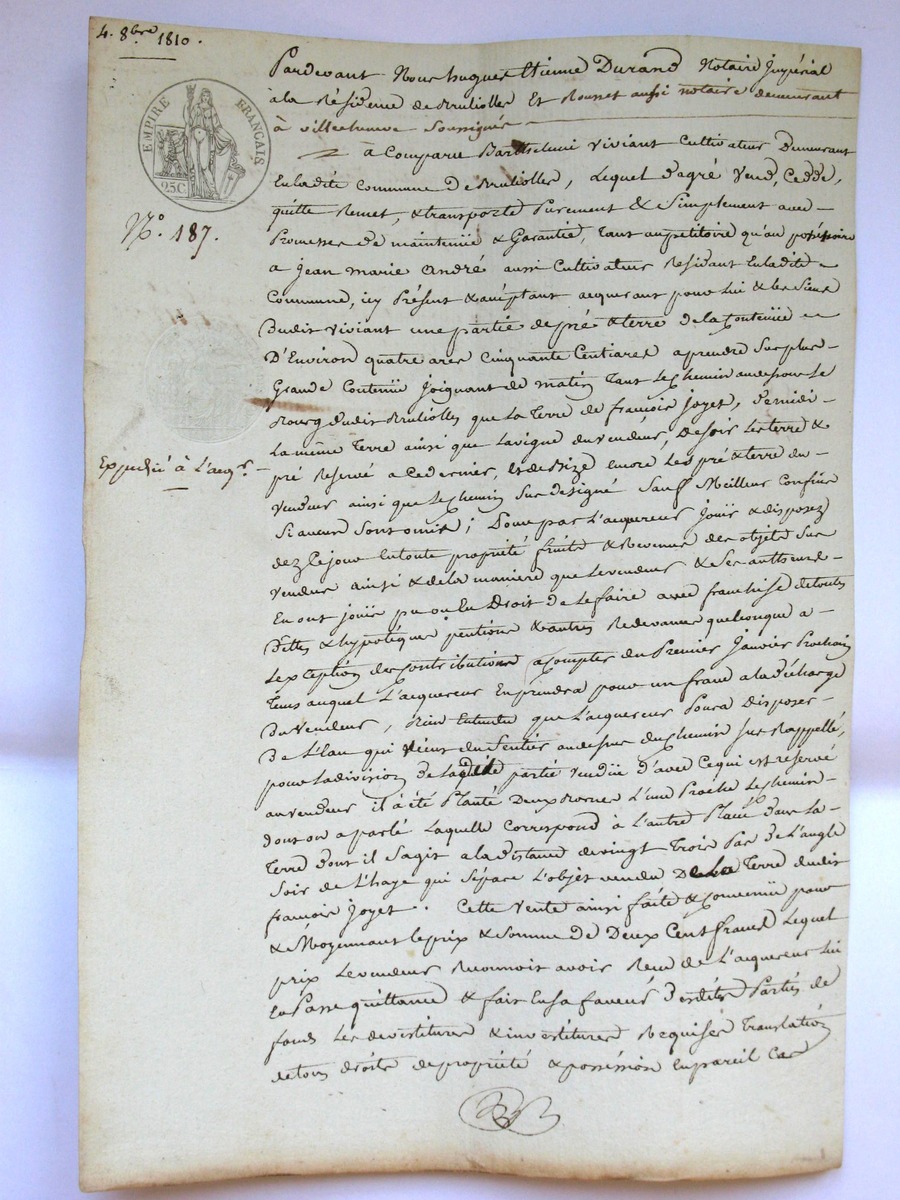 4. 8bre 1810.
EMPIRE FRANÇAIS
25C.
N.o 187.
Expedié à L'acqr.
Pardevant Nous hugues Etienne Durand Notaire Impérial
à la Résidence de Brulioles Et Rousset aussi notaire demeurant
à villecheneve Soussignés
à Comparu Barthelemi Viviant Cultivateur Demeurant
En ladite Commune de Brulioles, Lequel d'agré Vend, Cedde,
quitte Remet, & transporte Purement & Simplement avec
Promesses de maintenüe & Garantie, tant au petitoire qu'au possessoire
a jean marie andré aussi Cultivateur Residant En ladite
Commune, icy Présent & acceptant acquerant pour Lui & les Siens
Dudit Viviant une partie de pré & terre de la Contenüe
D'Environ quatre ares Cinquante Centiares a prendre Sur plus
Grande Contenüe Joignant de matin tant Le Chemin au dessous Le
Bourg dudit Brulioles que La Terre de françois Joyet, de midi
La même Terre ainsi que La vigne du vendeur, De Soir Les terre &
pré Reservé a Ce dernier, Et de Bize encore Les pré & terre du
Vendeur ainsi que Le Chemin Sus désigné Sauf Meilleur Confins
Si aucun Sont omis; Pour par L'acquereur Jouir & disposer
dez Ce jour En toute propriété fruits & Revenus des objets Sus
vendus ainsi & de la maniere que Le vendeur & Ses autheurs
En ont joüi pu ou Eu Droit de Le faire avec franchise de toutes
Dettes & hypotéques pentions & autres Redevances quelconque a
L'exception des Contributions a Compter du Premier Janvier Prochain
tems auquel L'acquereur En prendra pour un franc a la décharge
Du Vendeur, Bien Entendu que L'acquereur Poura disposer
De L'Eau qui vient du Sentier au dessus du Chemin Sus Rappellé,
pour La division de La dite partie vendüe d'avec Ce qui est reservé
au vendeur il à été Planté Deux Bornes L'une Proche Le Chemin
dont on a parlé Laquelle Correspond à L'autre Placée dans La
Terre dont il S'agit a la distance de vingt Trois Pas de L'angle
Soir de L'haye qui Sépare L'objet vendu De La Terre dudit
françois Joyet. Cette Vente ainsi faite & Convenüe pour
& Moyennant Le prix & Somme de Deux Cent francs Lequel
prix Le vendeur Reconnoit avoir Reçu de L'acquereur Lui
En Passe quittance & fait En Sa faveur desdites Parties de
fonds Les devestitures & investitures Requises Translation
de tous droits de propriété & possession En pareil Cas